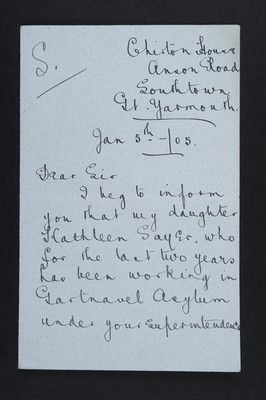 S.
Chiston House
Anson Road
Southtown
Gt. Yarmouth.
Jan 5th - /05.
Dear Sir
I beg to inform
you that my daughter
Kathleen Sayer, who
for the last two years
has been working in
Gartnavel Asylum
under your Superintendence